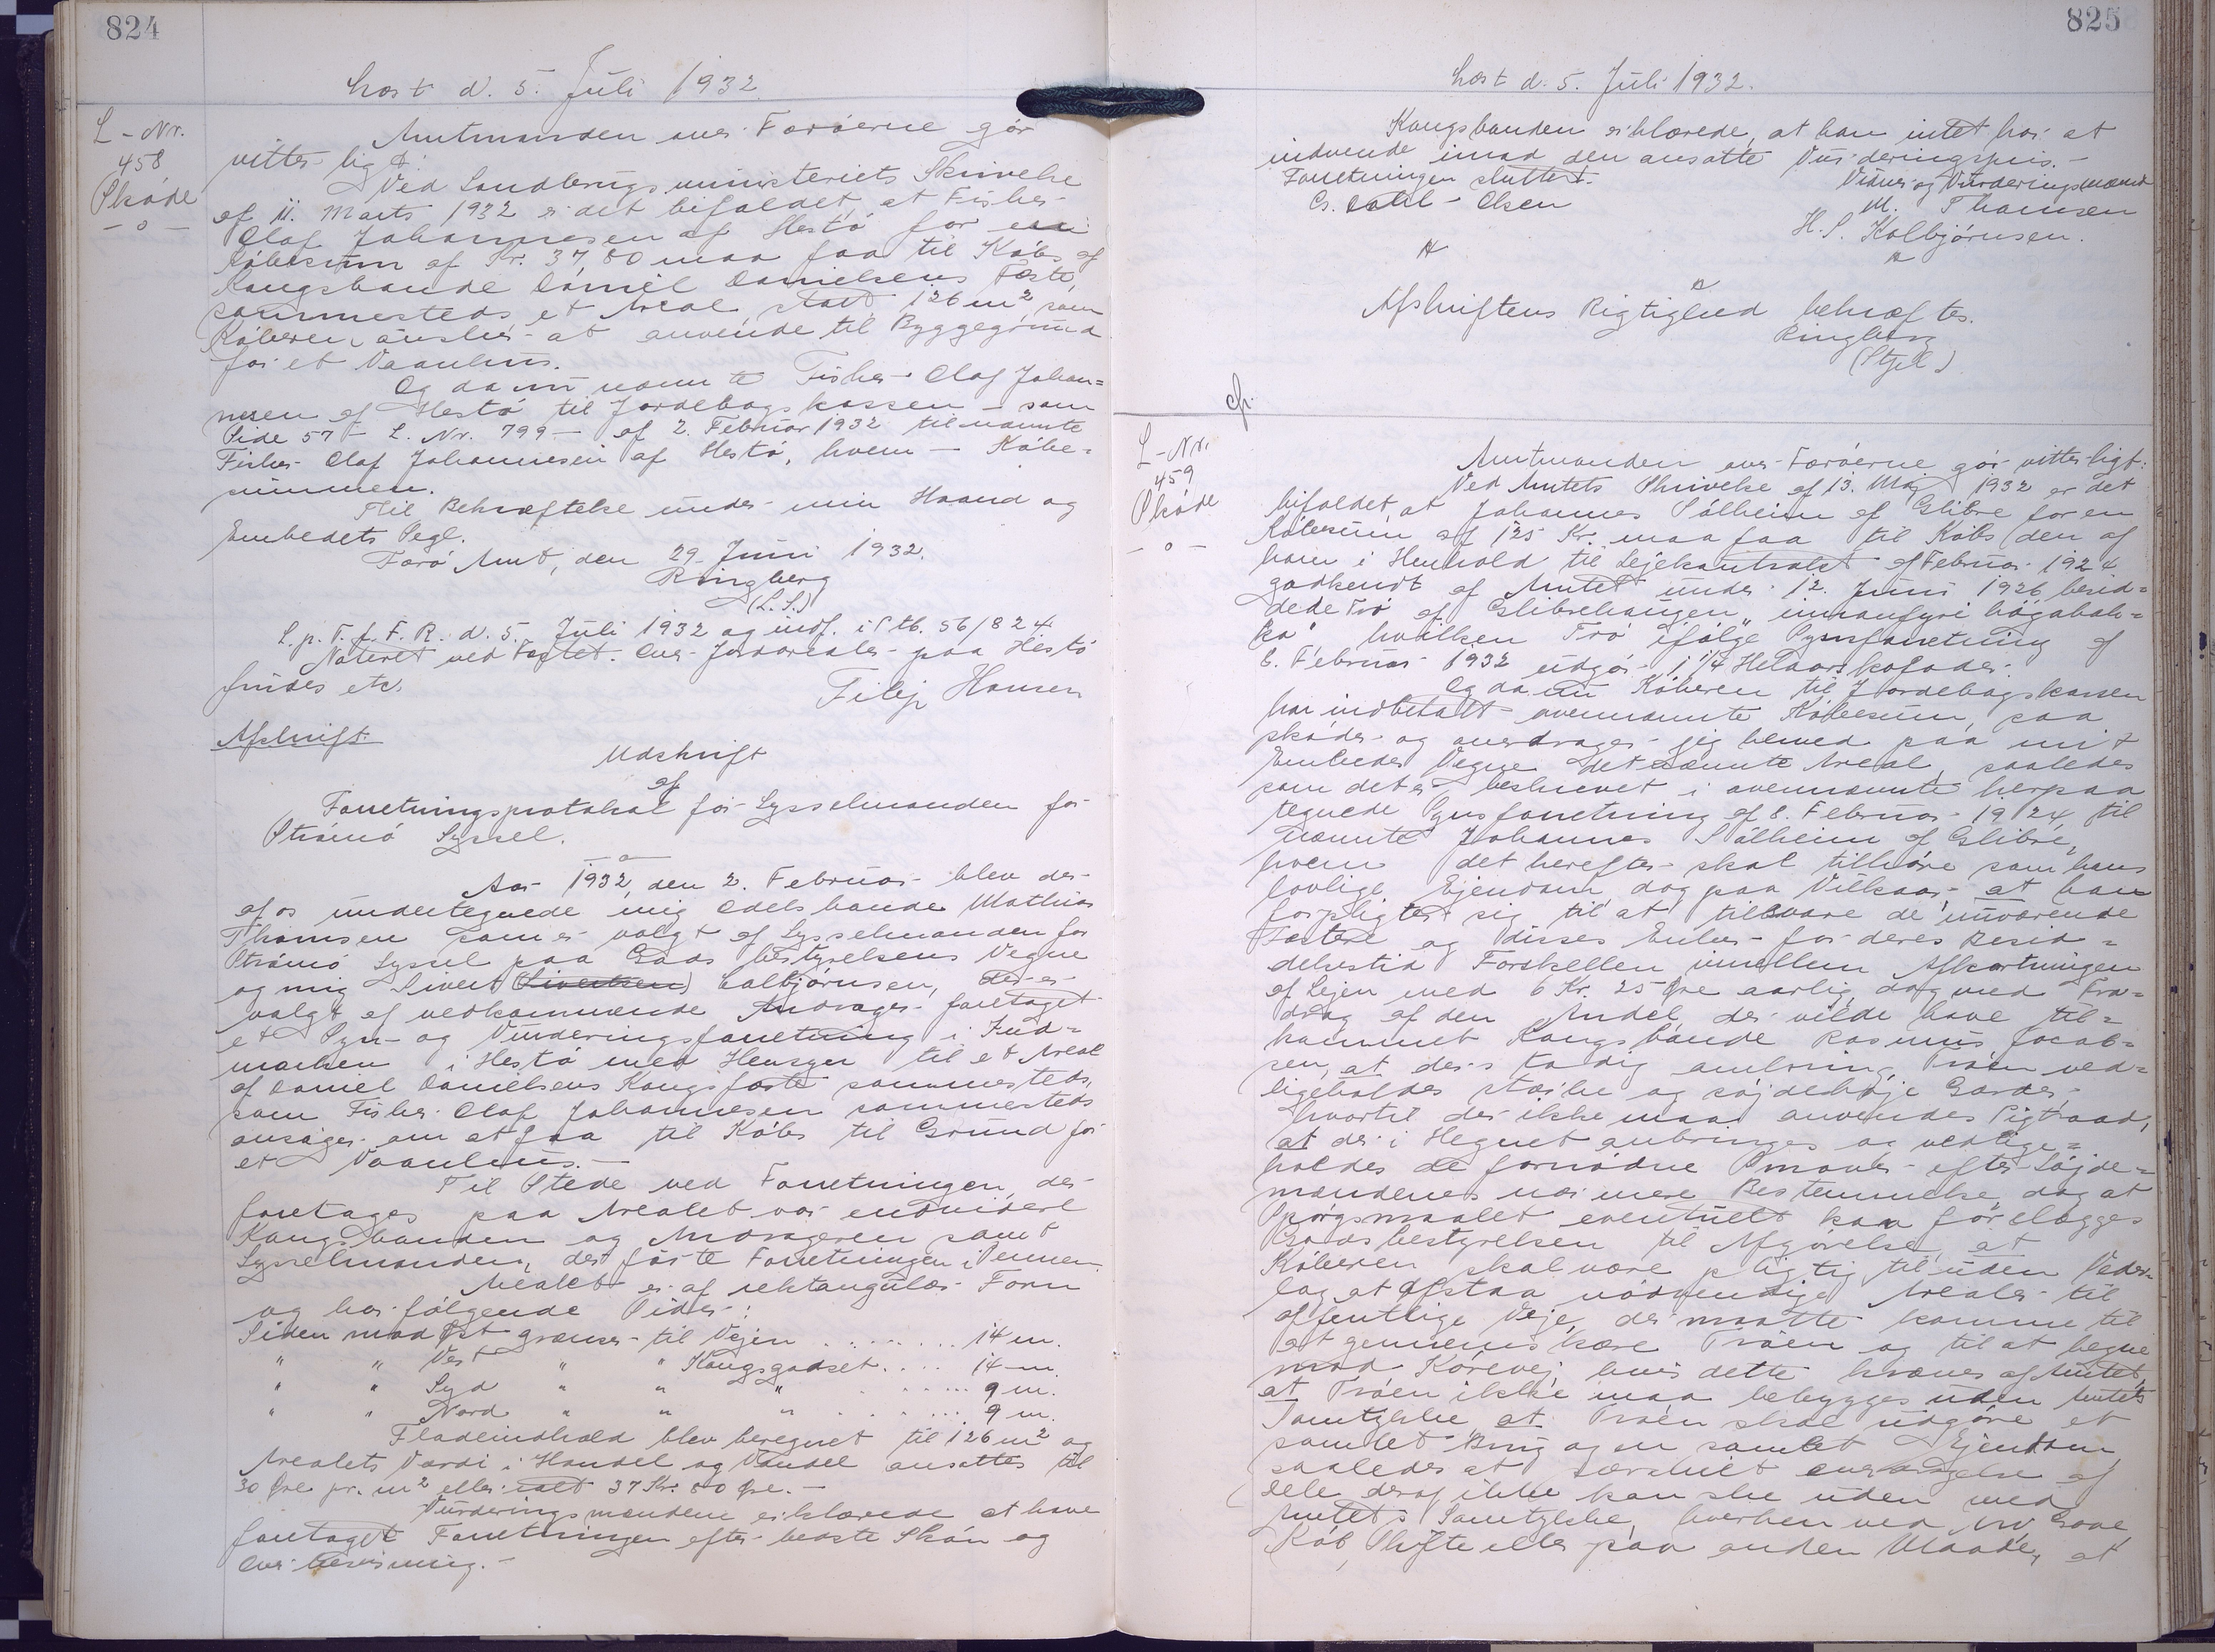 824
Læst d. 5. Juli 1932
L-Nr.
458
Skøde
- o -
Amtmanden over Færøerne gør
vitterligt:
Ved Landbrugsministeriets Skrivelse
af 11. Marts 1932 er det bifaldet, at Fisker
Olaf Johannesen af Hestø for en
Købesum af Kr. 37,80 maa faa til Købs af
Kongsbonde Daniel Danielsens Fæste
sammesteds et Areal, stort 126 m², som
Køberen ønsker at anvende til Byggegrund
for et Vaanhus.
Og da nu nævnte Fisker Olaf Johan=
nesen af Hestø til Jordebogskassen - som
Side 57 - L. Nr. 799 - af 2. Februar 1932 til nævnte
Fisker Olaf Johannesen af Hestø, hvem - Købe=
summen.
Til Bekræftelse under min Haand og
Embedets Segl.
Færø Amt, den 29. Juni 1932.
Ringberg
(L.S.)
L. p. T. f. F. R. d. 5. Juli 1932 og indf. i Stb. 56/824
Noteret ved Fæstet. Over Jordarealer paa Hestø
findes etc.
Filip Hansen
Afskrift.
Udskrift
af
Forretningsprotokol for Sysselmanden for
Strømø Syssel.
Aar 1932, den 2. Februar blev der
af os undertegnede mig Odelsbonde Mathias
Thomsen som er valgt af Sysselmanden for
Strømø Syssel paa Godsbestyrelsens Vegne
og mig Sivert (Sivertsen) Colbjørnsen, der er
valgt af vedkommende Andrager foretaget
et Syn- og Vurderingsforretning i Ind=
marken i Hestø med Hensyn til et Areal
af Daniel Danielsens Kongsfæste sammesteds,
som Fisker Olaf Johannesen sammesteds
ansøger om at faa til Købs til Grund for
et Vaanhus.-
Til Stede ved Forretningen, der
foretages paa Arealet var endvidere
Kongsbonden og Andrageren samt
Sysselmanden, der førte Forretningen i Pennen.
Arealet er af rektangulær Form
og har følgende Sider:
Siden mod Øst grænser til Vejen ....... 14 m.
" " Vest " " Kongsgodset .... 14 m.
" " Syd " " " ...... 9 m.
" " Nord " " " ...... 9 m.
Fladeindhold blev beregnet til 126 m² og
Arealets Værdi i Handel og Vandel ansattes til
30 Øre pr. m² eller ialt 37 Kr. 80 Øre.-
Vurderingsmændene erklærede at have
foretaget Forretningen efter bedste Skøn og
Overbevisning.-
825
Læst d. 5. Juli 1932.
Kongsbonden erklærede, at han intet har at
indvende imod den ansatte Vurderingspris.-
Forretningen sluttet.
Vidner og Vurderingsmænd
Cs. Dahl-Olsen
M. Thomsen
H. S. Kolbjørnsen.
Afskriftens Rigtighed bekræftes.
Ringberg
(Stjl)
L-Nr.
459
Skøde
- o -
Amtmanden over Færøerne gør vitterligt:
Ved Amtets Skrivelse af 13. Maj 1932 er det
bifaldet, at Johannes Sólheim af Glibre for en
Købesum af 125 Kr. maa faa til Købs den af
ham i Henhold til Lejekontrakt af Februar 1924
godkendt af Amtet under 12. Juni 1926 besid=
dede Trø af Glibrehaugen "
hvilken Trø ifølge Synsforretning af
8. Februar 1932 udgør 1 1/4
Og da nu Køberen til Jordebogskassen
har indbetalt ovennævnte Købesum, saa
skøder og overdrager jeg herved paa mit
Embedes Vegne det nævnte Areal, saaledes
som det er beskrevet i ovennævnte herpaa
tegnede Synsforretning af 8. Februar 1924, til
nævnte Johannes Sólheim af Glibre,
hvem det herefter skal tilhøre som hans
lovlige Ejendom, dog paa Vilkaar, at han
forpligter sig til at tilsvare de nuværende
Fæstere og disses Enker for deres Besid=
delsestid Forskellen imellem Afkortningen
af Lejen med 6 Kr. 25 Øre aarlig, dog med Fra=
drag af den Andel, der vilde have til=
kommet Kongsbonde Rasmus Jacob=
sen, at der omkring Trøen ved=
ligeholdes stærke og søjdehøje Gærder,
hvortil der ikke maa anvendes Pigtraad,
at der i Hegnet anbringes og vedlige=
holdes de fornødne Smover efter Søjde=
mændenes nærmere Bestemmelse, dog at
Spørgsmaalet eventuelt kan forelægges
Godsbestyrelsen til Afgørelse, at
Køberen skal være pligtig til uden Veder=
lag at afstaa nødvendige Arealer til
offentlige Veje, der maatte komme til
at gennemskære Trøen og til at hegne
mod Kørevej, hvis dette kræves af Amtet,
at Trøen ikke maa bebygges uden Amtets
Samtykke, at Trøen skal udgøre et
samlet Brug og en samlet Ejendom
saaledes at særskilt Overdragelse af
Dele deraf ikke kan ske uden med
Amtets Samtykke, hverken ved Arv, Gave,
Køb, Skifte eller paa anden Maade, at